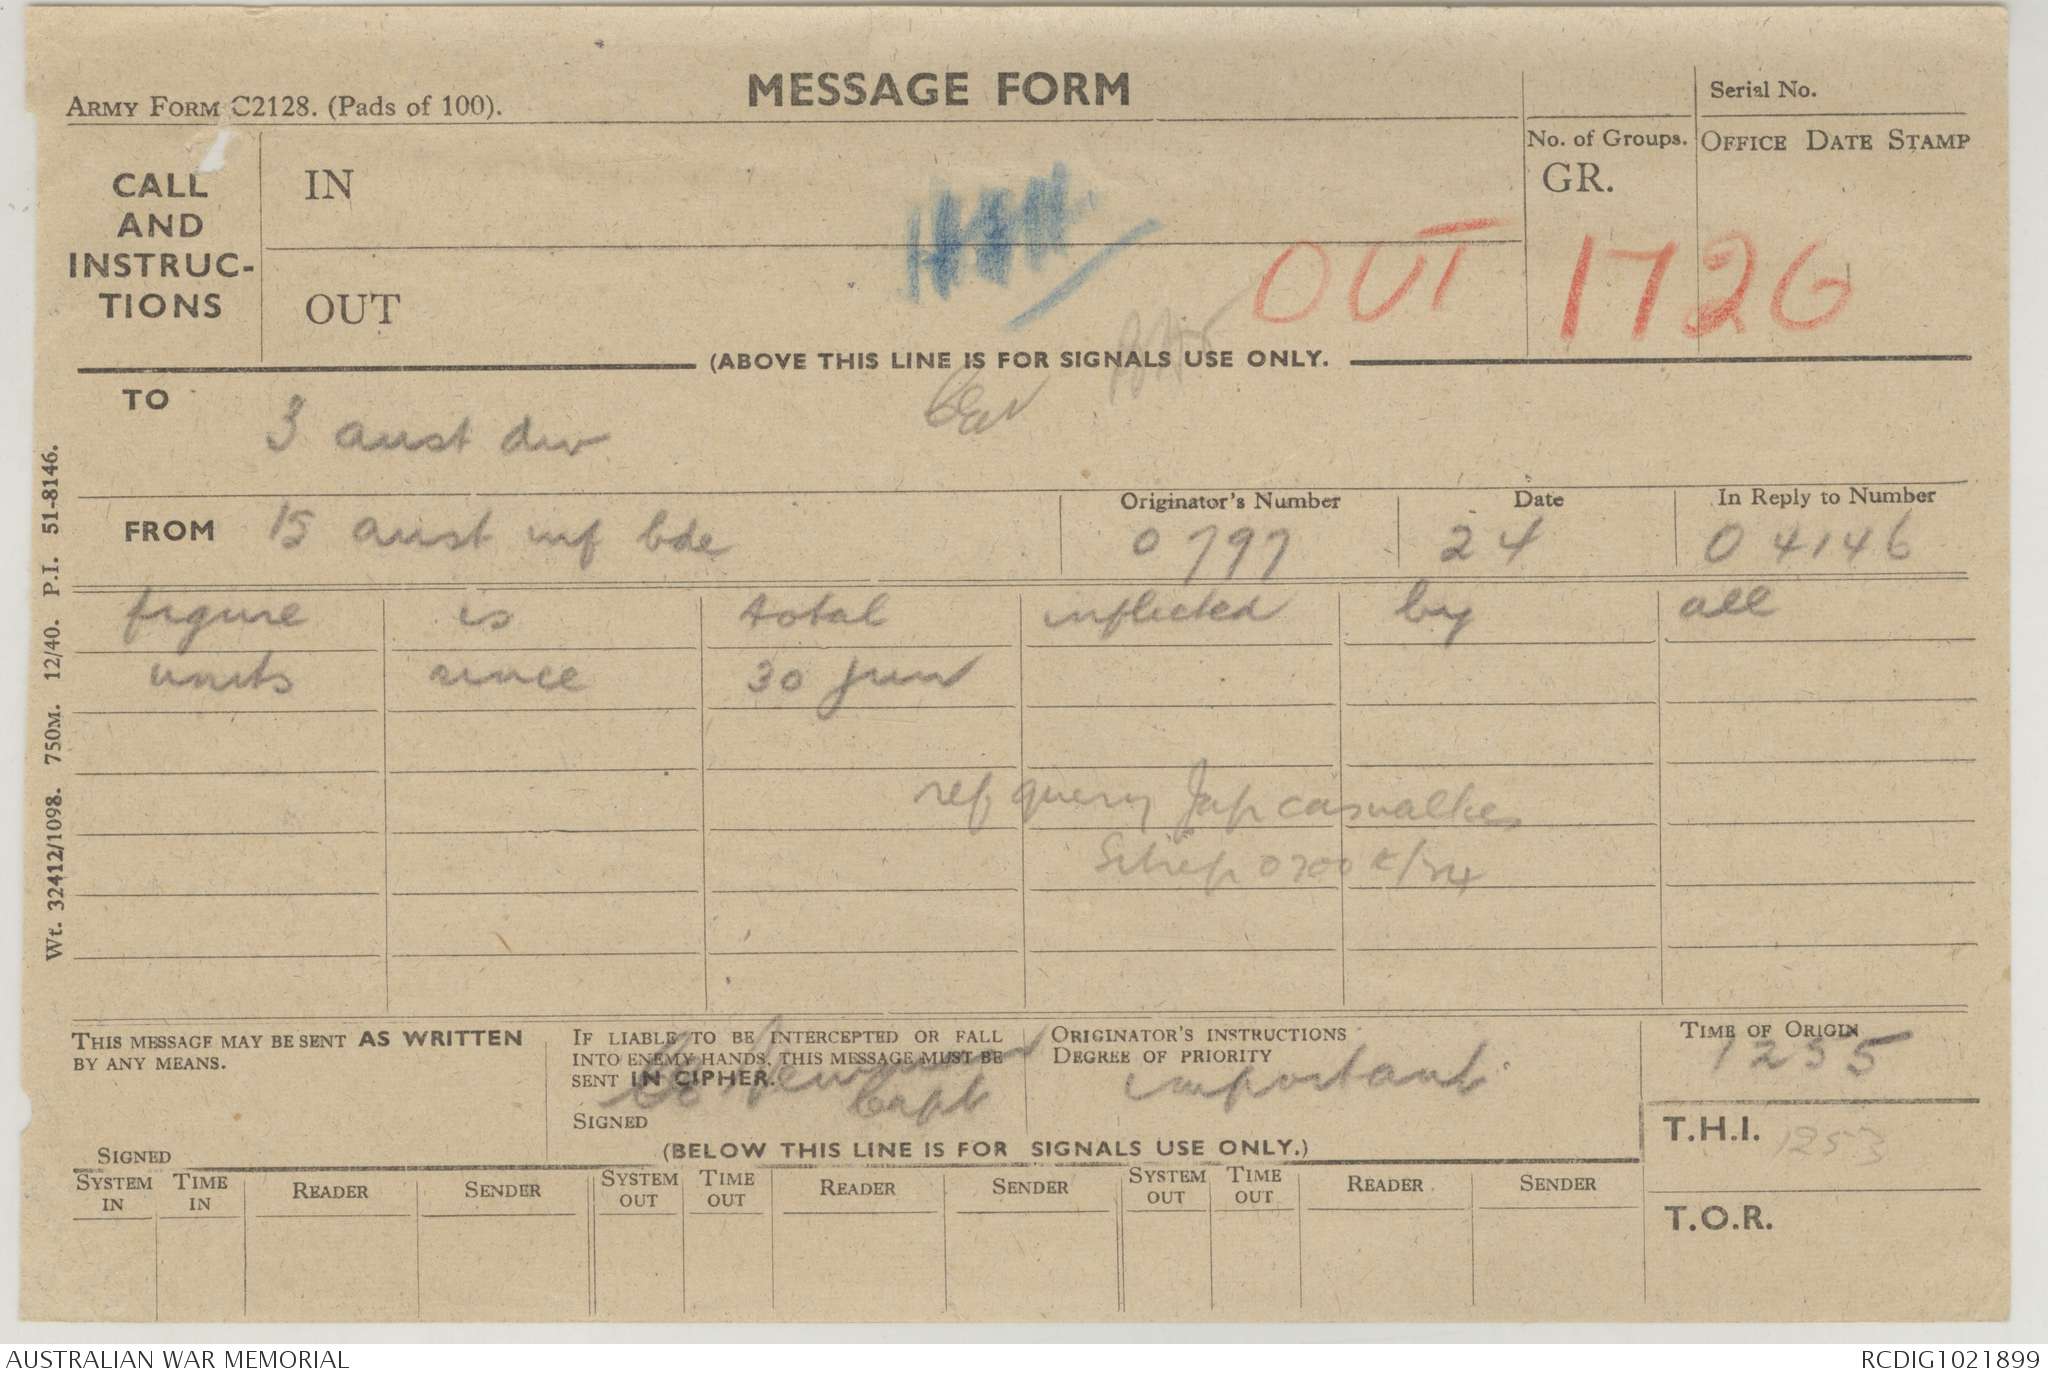 MESSAGE FORM
Army Form C2128. (Pads of 100).
Serial No.
No. of Groups.
OFFICE DATE STAMP
CALL
AND
INSTRUC-
TIONS
IN
GR.
OUT
OUT 1726
(ABOVE THIS LINE IS FOR SIGNALS USE ONLY.
TO
3 aust div
Originator's Number
Date
In Reply to Number
FROM 15 aust inf bde
0797
24
04146
figure is total inflicted by all
units since 30 jun
ref query Jap casualties
Sitrep 0700 K/24
Wt. 32412/1098. 750M. 12/40. P.I. 51-8146.
THIS MESSAGE MAY BE SENT AS WRITTEN
BY ANY MEANS.
SIGNED
IF LIABLE TO BE INTERCEPTED OR FALL
INTO ENEMY HANDS, THIS MESSAGE MUST BE
SENT IN CIPHER.
Capt
SIGNED
ORIGINATOR'S INSTRUCTIONS
DEGREE OF PRIORITY
important
TIME OF ORIGIN
1235
T.H.I. 1253
T.O.R.
(BELOW THIS LINE IS FOR SIGNALS USE ONLY.)
SYSTEM IN TIME IN READER SENDER SYSTEM OUT TIME OUT READER SENDER SYSTEM OUT TIME OUT READER SENDER
AUSTRALIAN WAR MEMORIAL
RCDIG1021899